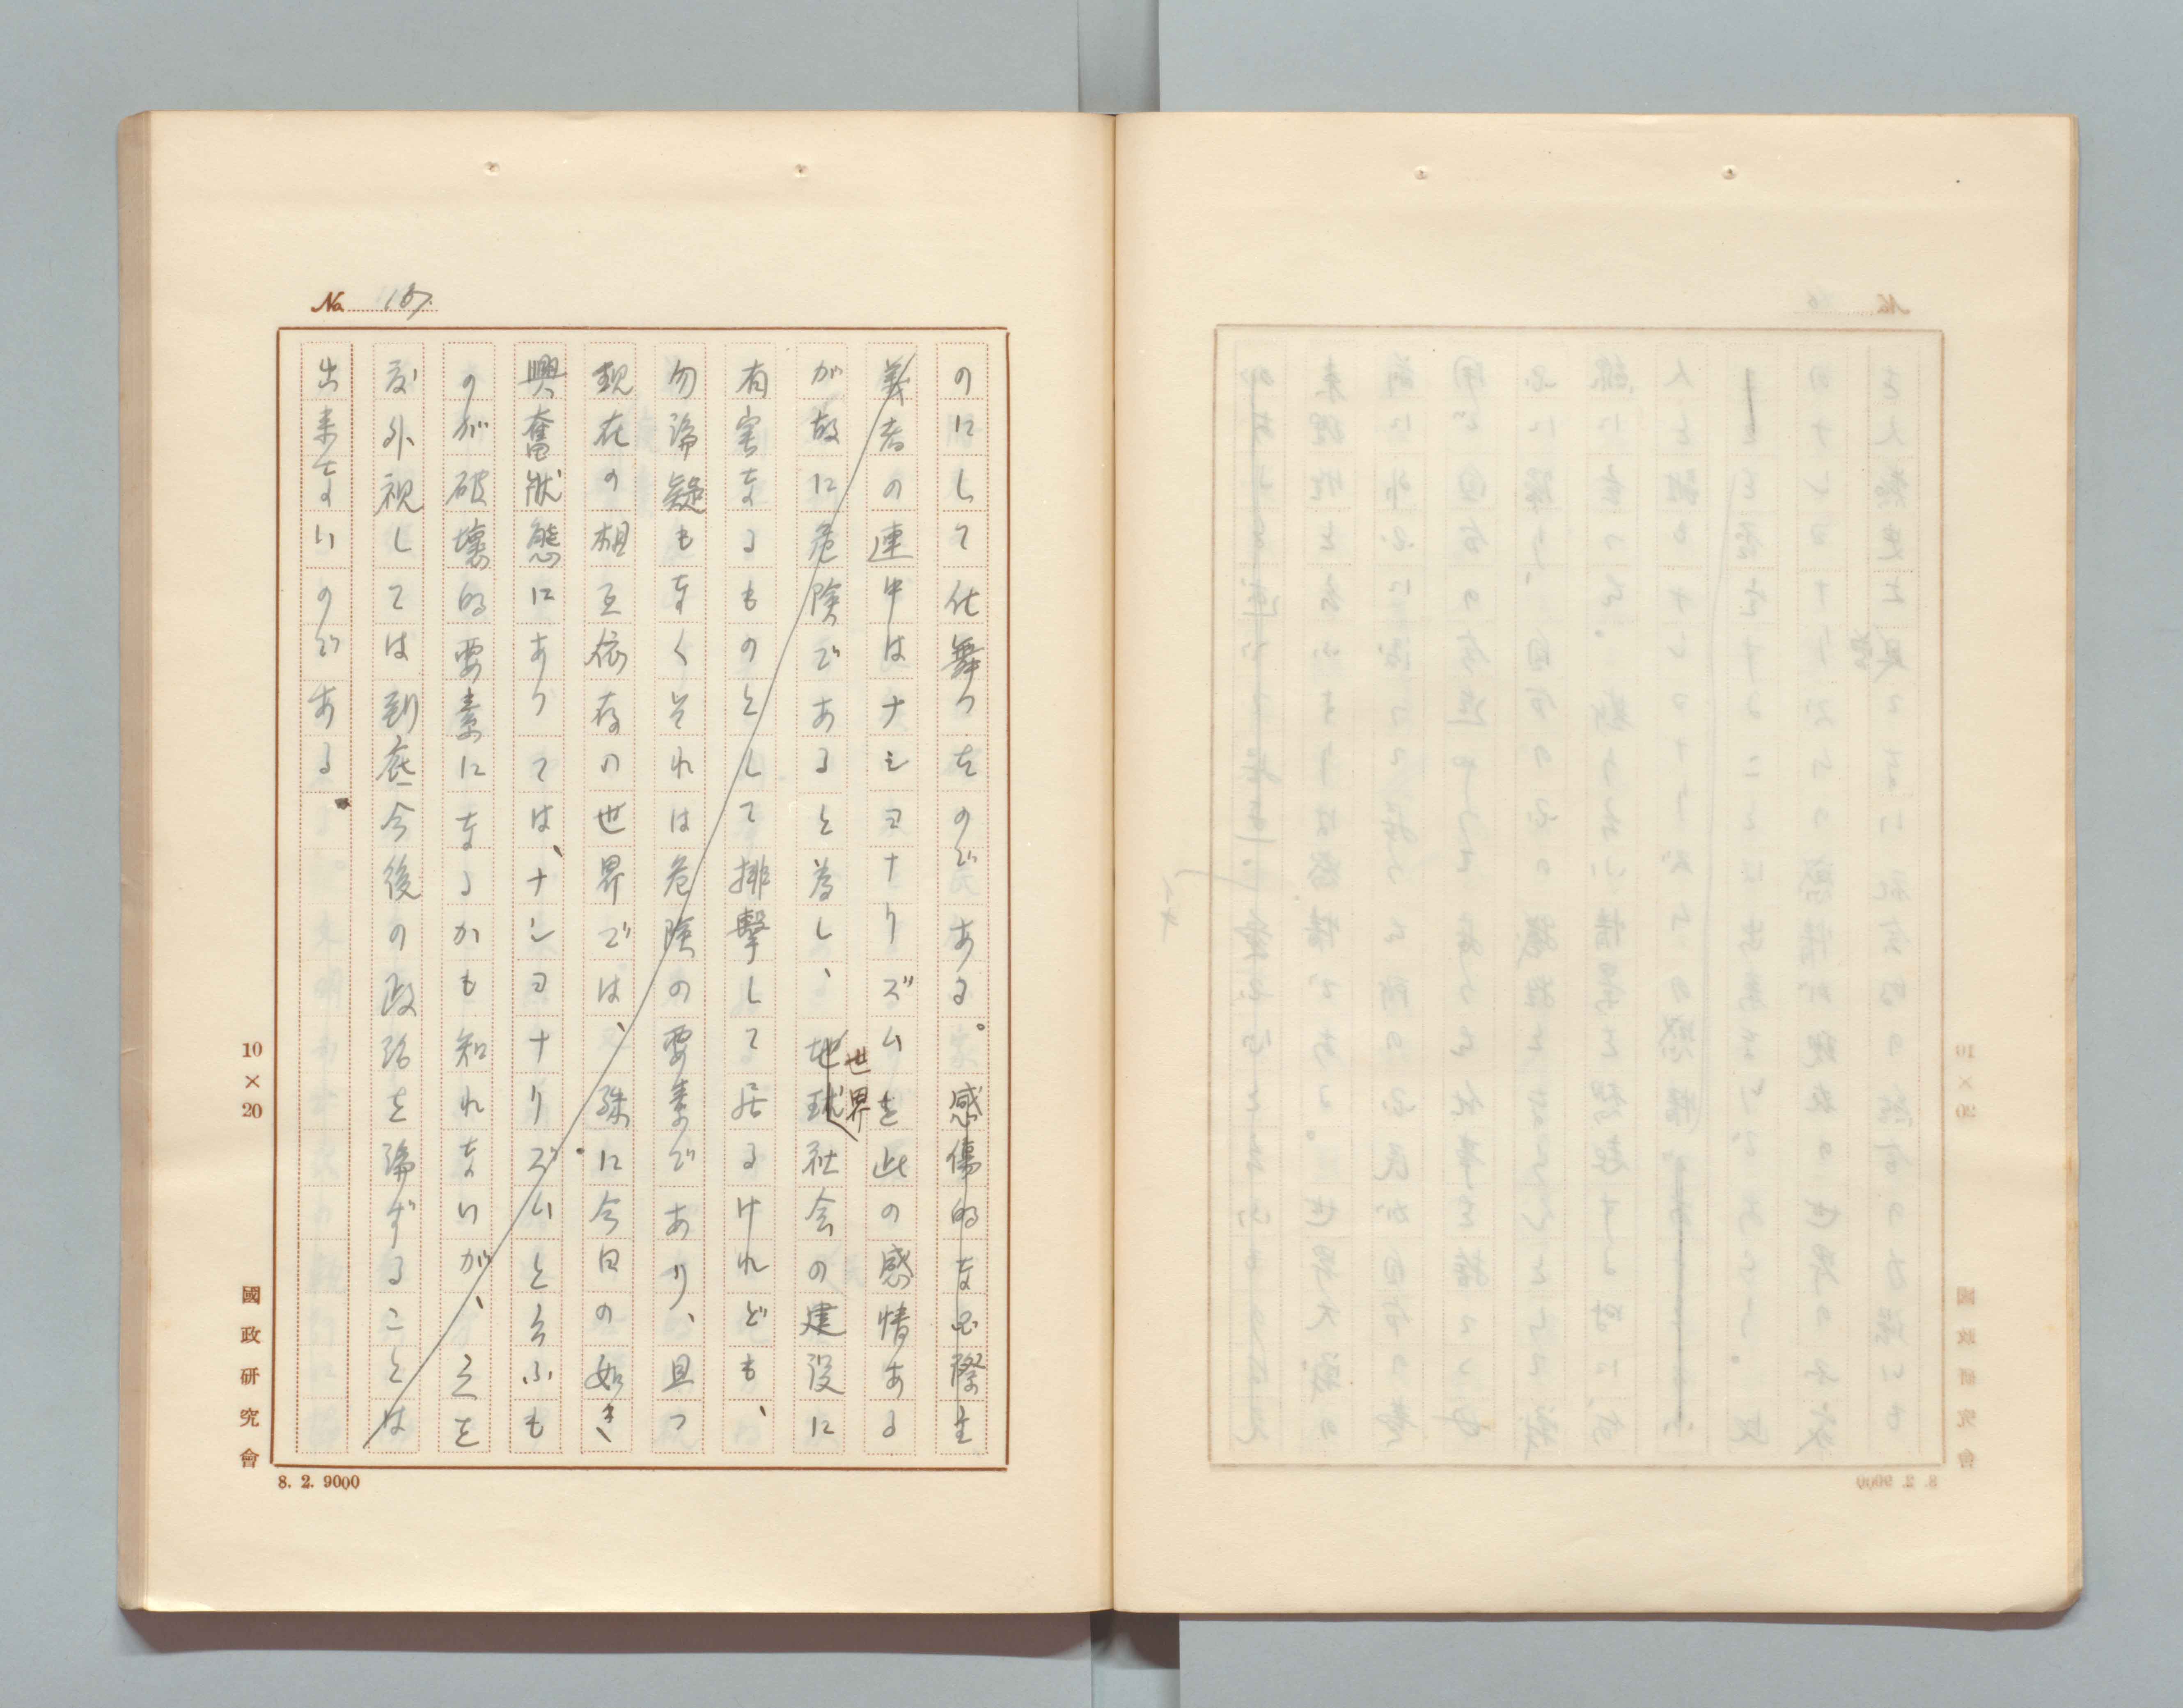 No. 167.
のにして仕舞つたのである。感傷的な国際主
義者の連中はナショナリズムを此の感情ある
が故に危険であると為し、地球社会の建設に
世界
有害なるものとして排撃して居るけれども、
勿論疑もなくそれは危険の要素であり、且つ
現在の相互依存の世界では、殊に今日の如き
興奮状態にありては、ナショナリズムと云ふも
のが破壊的要素になるかも知れないが、之を
度外視しては到底今後の政治を論ずることは
出来ないのである。
10×20
國政研究會
8. 2. 9000